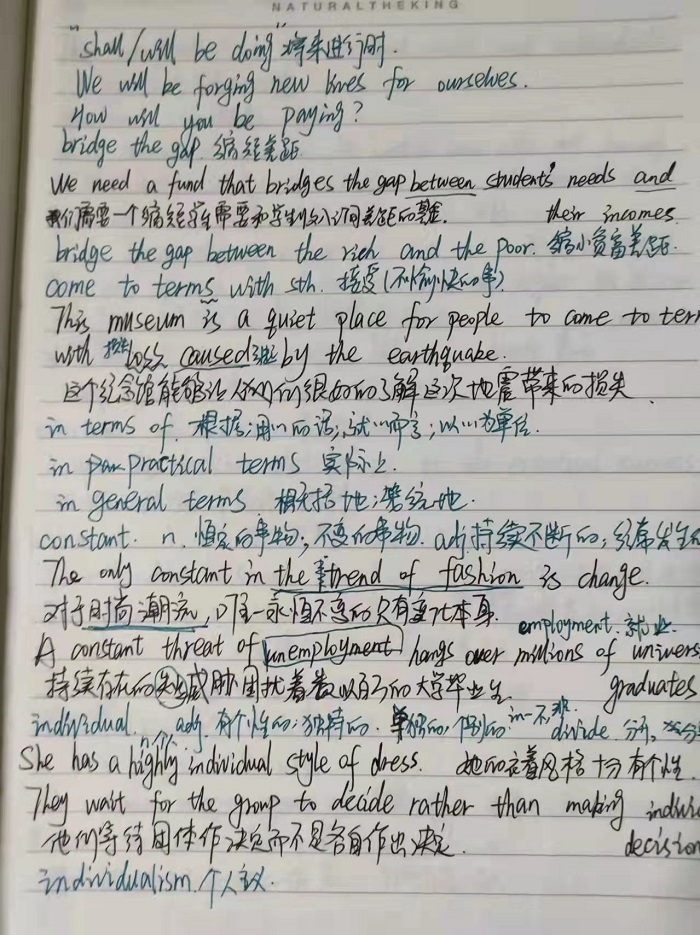 NATURALTHEKING
"shall/will be doing" 将来进行时.
We will be forging new lives for ourselves.
How will you be paying?
bridge the gap 缩短差距
We need a fund that bridges the gap between students' needs and
their incomes.
我们需要一个缩短学生需要和学生收入之间差距的基金.
bridge the gap between the rich and the poor. 缩小贫富差距.
come to terms with sth. 接受(不愉快的事)
This museum is a quiet place for people to come to ter
with loss caused by the earthquake.
这个纪念馆能够让人们很好的了解这次地震带来的损失.
in terms of. 根据;用…的话;就…而言;以…为单位.
in practical terms 实际上.
in general terms 概括地;笼统地.
constant. n. 恒定的事物;不变的事物. adj.持续不断的;经常发生的
The only constant in the trend of fashion is change.
对于时尚潮流,唯一永恒不变的只有变化本身.
employment. 就业.
A constant threat of unemployment hangs over millions of univers
graduates
持续存在的失业威胁困扰着数以百万的大学毕业生
individual. adj. 有个性的;独特的. 单独的,个别的 in-不,非. divide. 分,
n.个人
She has a highly individual style of dress. 她的衣着风格十分有个性.
They wait for the group to decide rather than making individu
decision
他们等待团体作决定而不是各自作出决定.
individualism.个人主义.